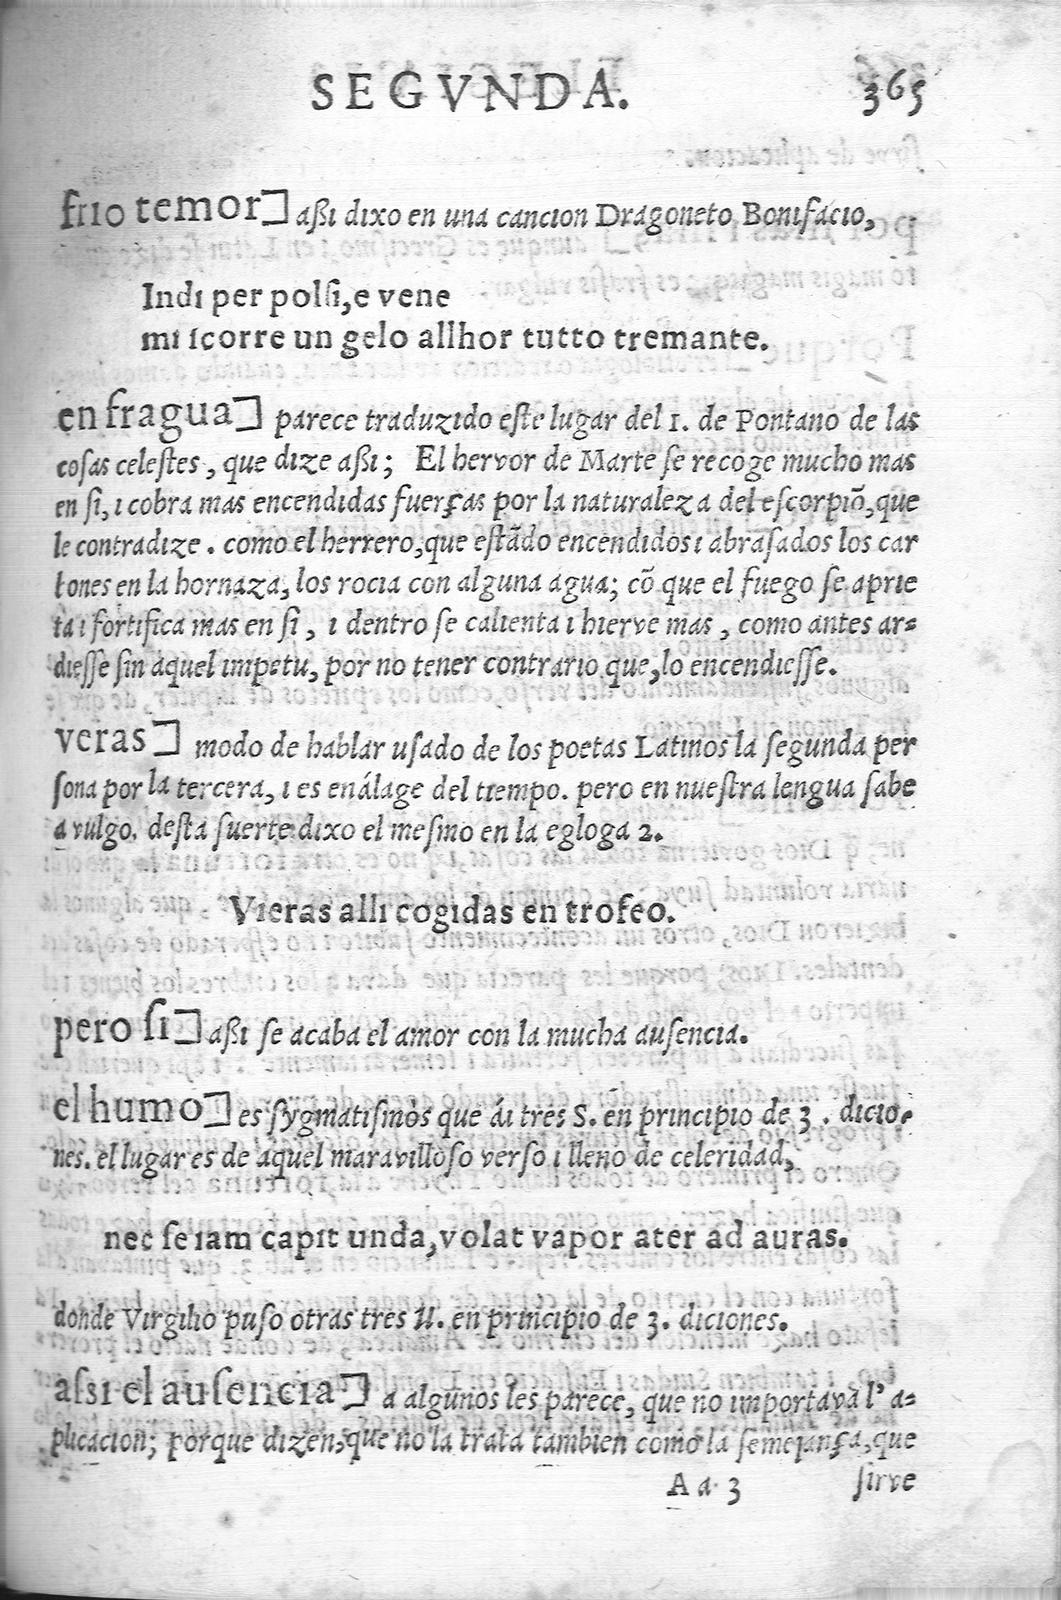 SEGVNDA. 365
frio temor] aßi dixo en una cancion Dragoneto Bonifacio,
Indı per polſi, e vene
mi ſcorre un gelo allhor tutto tremante.
en fragua] parece traduzido eſte lugar del 1. de Pontano de las
coſas celeſtes, que dize aßi; El hervor de Marte ſe recoge mucho mas
en ſi, ı cobra mas encendidas fuerças por la naturaleza del eſcorpiõ, que
le contradize. como el herrero, que eſtãdo encendidos ı abraſados los car
bones en la hornaza, los rocia con alguna agua; cõ que el fuego ſe aprie
ta ı fortifica mas en ſi, ı dentro ſe calienta ı hierve mas, como antes ar-
dieſſe ſin aquel impetu, por no tener contrario que, lo encendieſſe.
veras] modo de hablar uſado de los poetas Latinos la ſegunda per
ſona por la tercera, ı es enálage del tiempo. pero en nueſtra lengua ſabe
a vulgo. deſta ſuerte dixo el meſmo en la egloga 2.
Vieras alli cogidas en trofeo.
pero ſi] aßi ſe acaba el amor con la mucha auſencia.
el humo] es ſygmatiſmòs que ái tres S. en principio de 3. dicio-
nes. el lugar es de aquel maravilloſo verſo ı lleno de celeridad,
nec ſe iam capit unda, volat vapor ater ad auras.
donde Virgilio puſo otras tres U. en principio de 3. diciones.
aſsi el auſencia] a algunos les parece, que no importava l' a-
plicacion; porque dizen, que no la trata tambien como la ſemejança, que
A a 3 ſirve